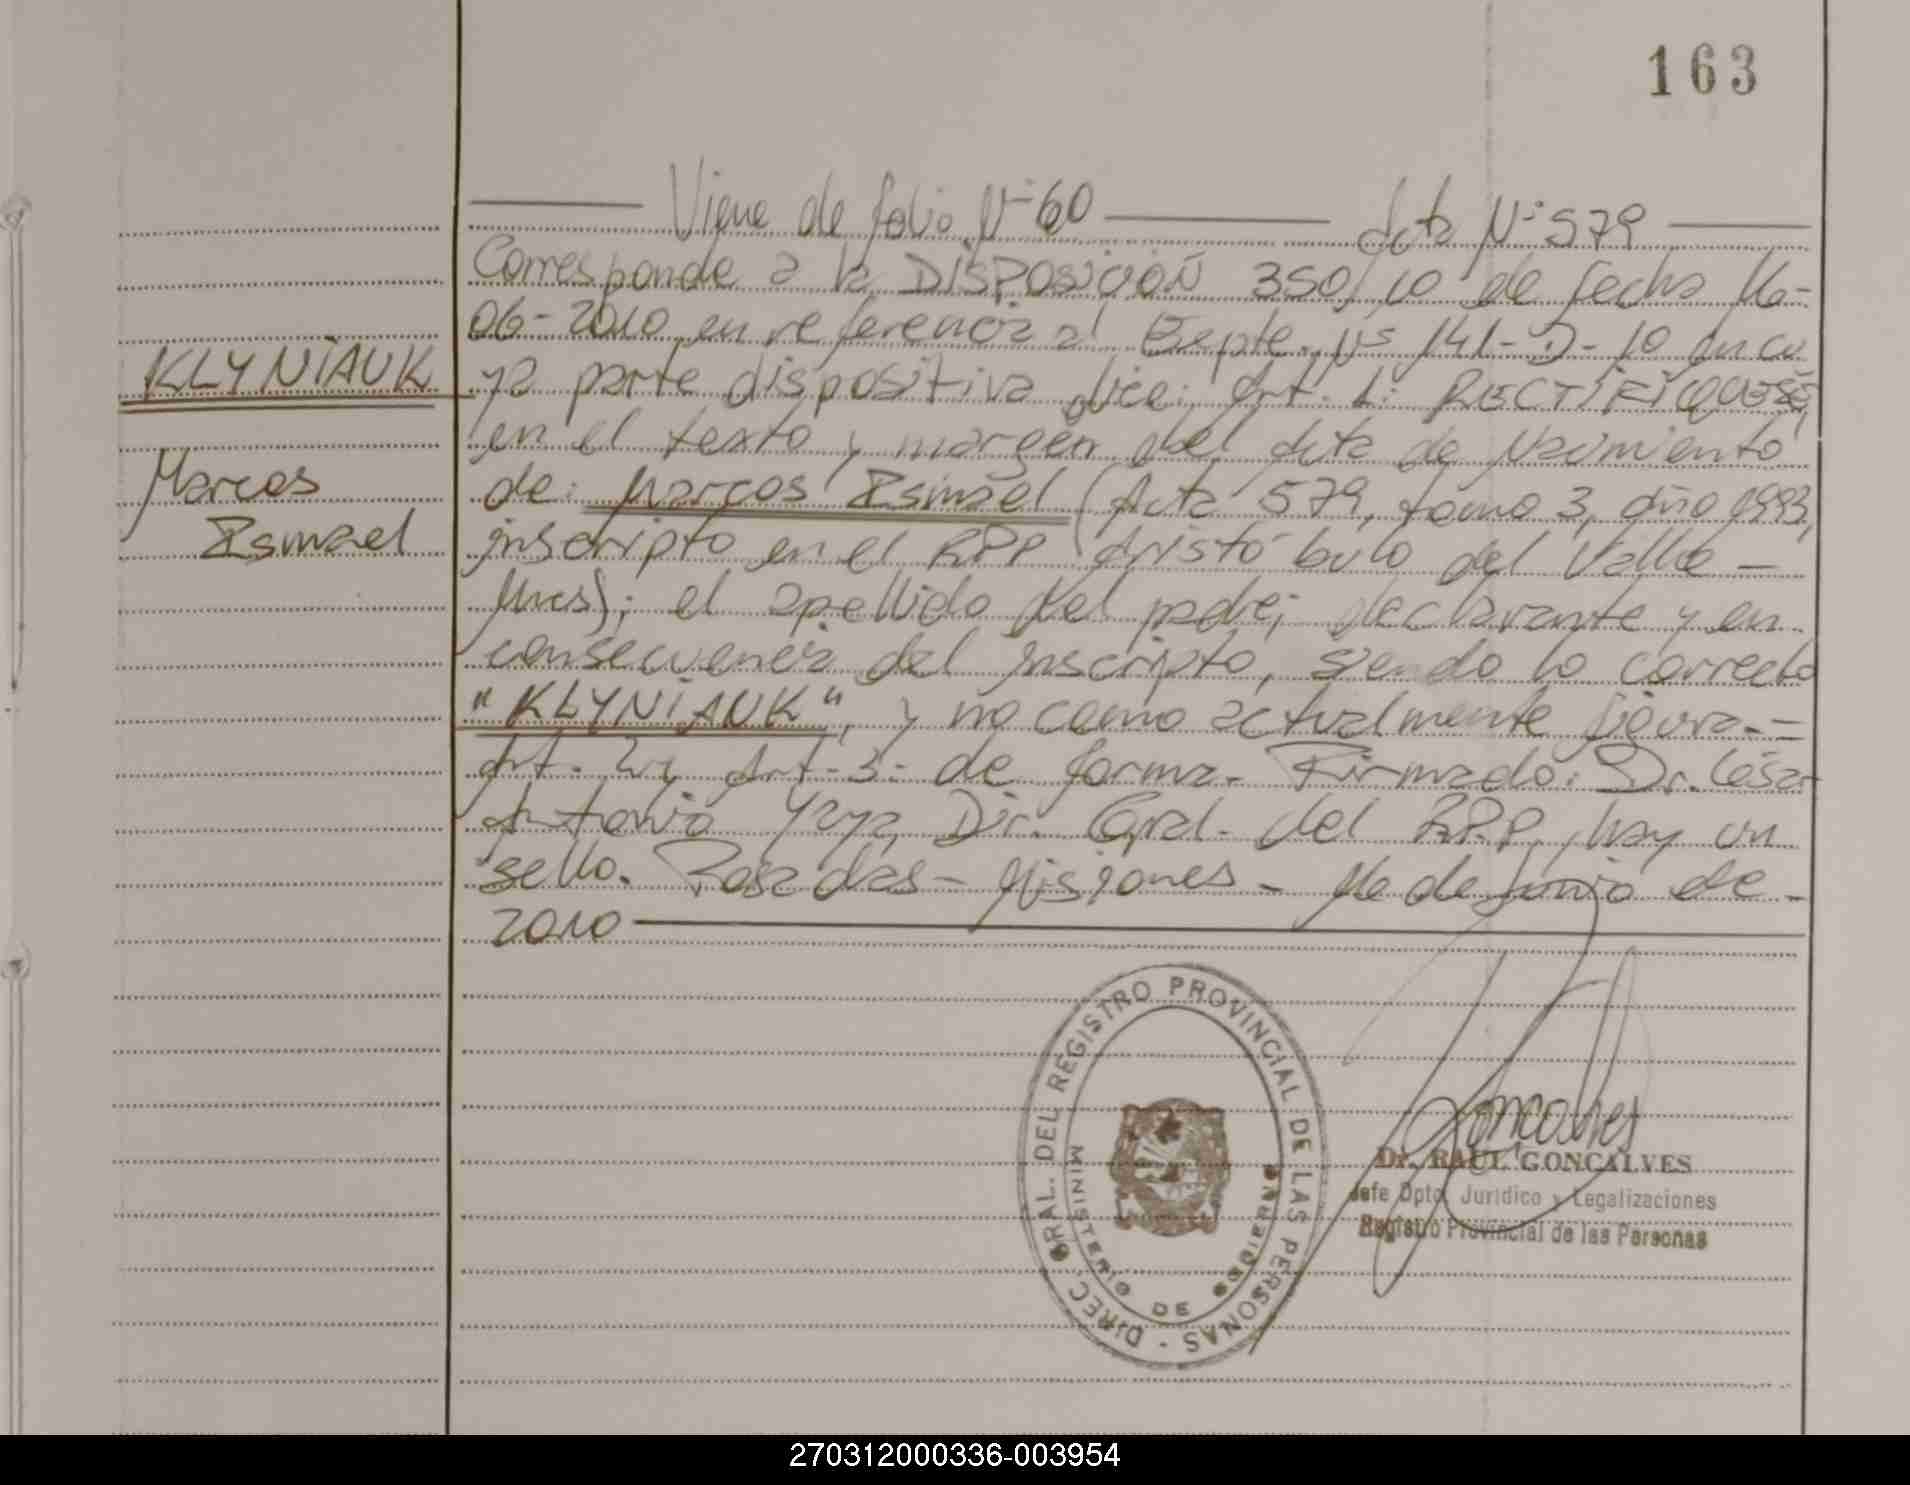 163
Viene de folio Nº 60 Acta Nº 579
Corresponde a la DISPOSICIÓN 350/10 de fecha 16-
06-2010, en referencia al Expte. Nº 141-D-10 en cu
KLYNIAUK
ya parte dispositiva dice: Art. 1: RECTIFIQUESE,
en el texto y margen del Acta de Nacimiento
Marcos
de: Marcos Ismael (Acta 579, tomo 3, año 1993,
Ismael
inscripto en el RPP Aristóbulo del Valle -
Mnes); el apellido del padre; declarante y en
consecuencia del inscripto, siendo lo correcto
"KLYNIAUK", y no como actualmente figura.-
Art. 2 y Art-3- de forma. Firmado: Dr. César
Antonio Yaya, Dir. Gral. del R.P.P, hay un
sello. Posadas - Misiones - 16 de Junio de -
2010
DIREC. GRAL. DEL REGISTRO PROVINCIAL DE LAS PERSONAS -
MINISTERIO DE GOBIERNO
Goncalves
Dr. RAUL GONCALVES
Jefe Dpto. Jurídico y Legalizaciones
Registro Provincial de las Personas
270312000336-003954